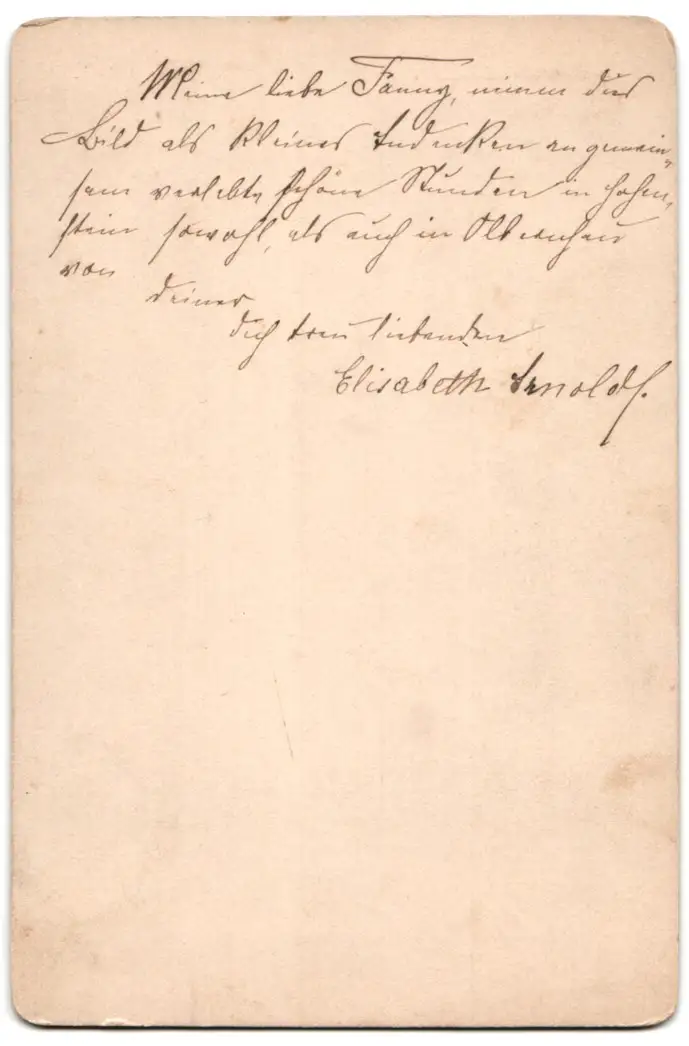 Meine liebe Fanny, nimm dies
Bild als kleines Andenken an gemein-
sam verlebte schöne Stunden in Hohen-
stein sowohl, als auch in Olbernhau
von
deiner
dich treu liebenden
Elisabeth Arnoldt.